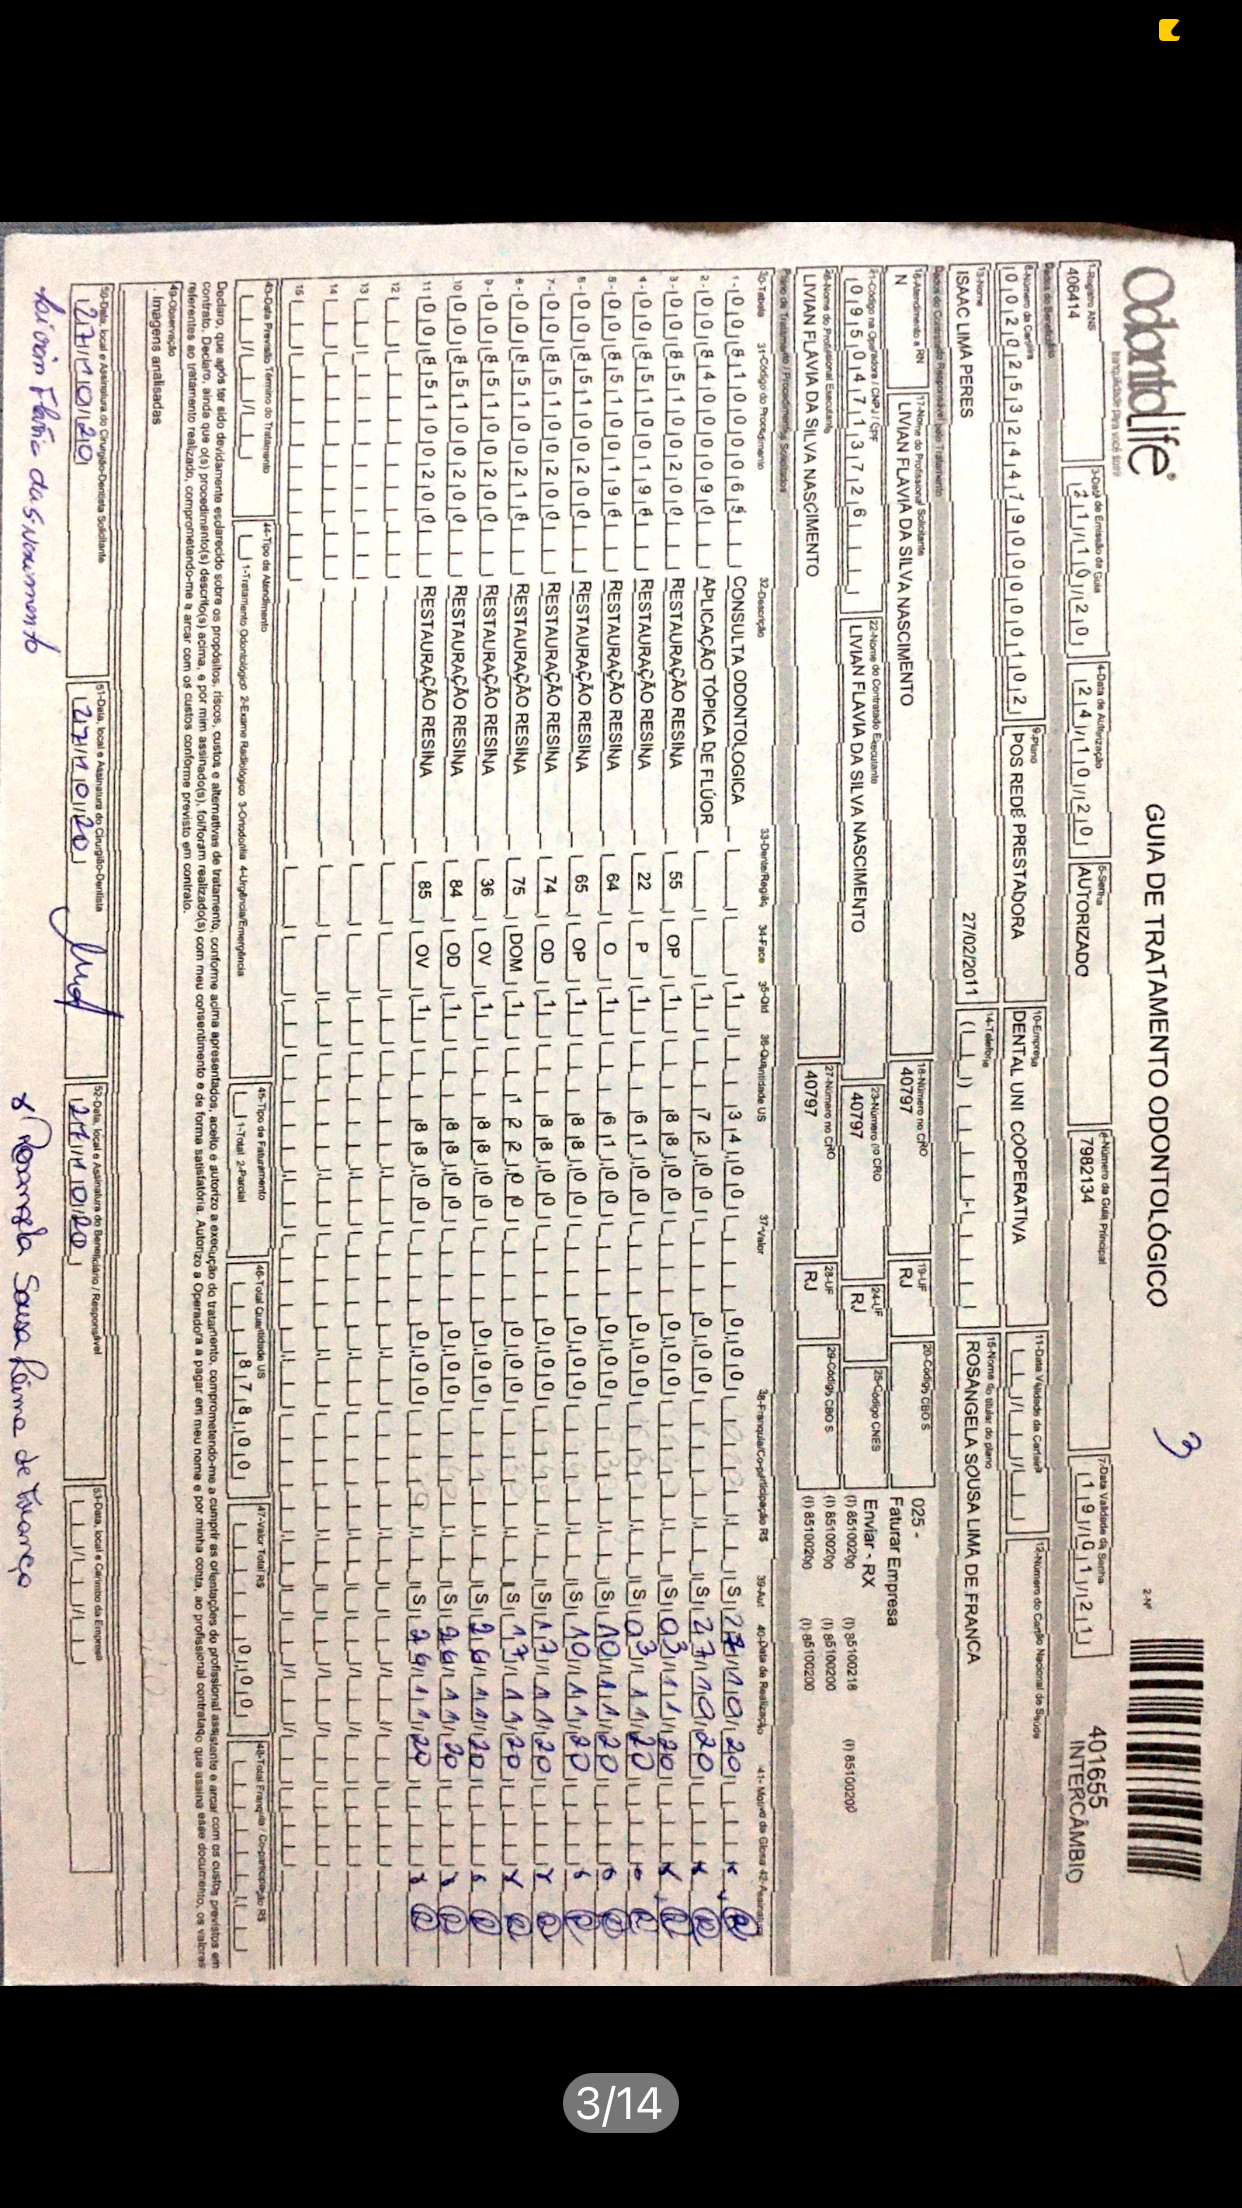 OdontoLife®
tranquilidade para você sorrir
GUIA DE TRATAMENTO ODONTOLÓGICO
3
2-Nº
401655
INTERCÂMBIO
1-Registro ANS
406414
3-Data de Emissão da Guia
21/10/20
4-Data de Autorização
24/10/20
5-Senha
AUTORIZADO
6-Número da Guia Principal
7982134
7-Data Validade da Senha
19/01/21
Dados do Beneficiário
8-Número da Carteira
00202532447900000102
9-Plano
POS REDE PRESTADORA
10-Empresa
DENTAL UNI COOPERATIVA
11-Data Validade da Carteira
12-Número do Cartão Nacional de Saúde
13-Nome
ISAAC LIMA PERES
27/02/2011
14-Telefone
15-Nome do titular do plano
ROSANGELA SOUSA LIMA DE FRANCA
Dados do Contratado Responsável pelo Tratamento
16-Atendimento a RN
N
17-Nome do Profissional Solicitante
LIVIAN FLAVIA DA SILVA NASCIMENTO
18-Número no CRO
40797
19-UF
RJ
20-Código CBO S
025 -
Faturar Empresa
21-Código na Operadora / CNPJ / CPF
09504713726
22-Nome do Contratado Executante
LIVIAN FLAVIA DA SILVA NASCIMENTO
23-Número no CRO
40797
24-UF
RJ
25-Código CNES
Enviar - RX
(I) 85100200 (I) 85100218 (I) 85100200
(I) 85100200 (I) 85100200
(I) 85100200 (I) 85100200
26-Nome do Profissional Executante
LIVIAN FLAVIA DA SILVA NASCIMENTO
27-Número no CRO
40797
28-UF
RJ
29-Código CBO S
Plano de Tratamento / Procedimentos Solicitados
30-Tabela 31-Código do Procedimento 32-Descrição 33-Dente/Região 34-Face 35-Qtd 36-Quantidade US 37-Valor 38-Franquia/Co-participação R$ 39-Aut 40-Data de Realização 41-Motivo de Glosa 42-Assinatura
1- 00 81000065 CONSULTA ODONTOLOGICA 1 34,00 0,00 S 27/10/20
2- 00 84000090 APLICAÇÃO TÓPICA DE FLÚOR 1 72,00 0,00 S 27/10/20
3- 00 85100200 RESTAURAÇÃO RESINA 55 OP 1 88,00 0,00 S 03/11/20
4- 00 85100196 RESTAURAÇÃO RESINA 22 P 1 61,00 0,00 S 03/11/20
5- 00 85100196 RESTAURAÇÃO RESINA 64 O 1 61,00 0,00 S 10/11/20
6- 00 85100200 RESTAURAÇÃO RESINA 65 OP 1 88,00 0,00 S 10/11/20
7- 00 85100200 RESTAURAÇÃO RESINA 74 OD 1 88,00 0,00 S 17/11/20
8- 00 85100218 RESTAURAÇÃO RESINA 75 DOM 1 122,00 0,00 S 17/11/20
9- 00 85100200 RESTAURAÇÃO RESINA 36 OV 1 88,00 0,00 S 26/11/20
10 00 85100200 RESTAURAÇÃO RESINA 84 OD 1 88,00 0,00 S 26/11/20
11 00 85100200 RESTAURAÇÃO RESINA 85 OV 1 88,00 0,00 S 26/11/20
12
13
14
15
43-Data Previsão Término do Tratamento
44-Tipo de Atendimento
1-Tratamento Odontológico 2-Exame Radiológico 3-Ortodontia 4-Urgência/Emergência
45-Tipo de Faturamento
1-Total 2-Parcial
46-Total Quantidade US
878,00
47-Valor Total R$
0,00
48-Total Franquia / Co-participação R$
Declaro, que após ter sido devidamente esclarecido sobre os propósitos, riscos, custos e alternativas de tratamento, conforme acima apresentados, aceito e autorizo a execução do tratamento, comprometendo-me a cumprir as orientações do profissional assistente e arcar com os custos previstos em
contrato. Declaro, ainda que o(s) procedimento(s) descrito(s) acima, e por mim assinado(s), foi/foram realizado(s) com meu consentimento e de forma satisfatória. Autorizo a Operadora a pagar em meu nome e por minha conta, ao profissional contratado que assina esse documento, os valores
referentes ao tratamento realizado, comprometendo-me a arcar com os custos conforme previsto em contrato.
49-Observação
. Imagens analisadas
50-Data, local e Assinatura do Cirurgião-Dentista Solicitante
27/10/20
51-Data, local e Assinatura do Cirurgião-Dentista
27/10/20
52-Data, local e Assinatura do Beneficiário / Responsável
27/10/20
53-Data, local e Carimbo da Empresa
Livian Flavia da S. Nascimento
x Rosangela Sousa Lima de França
3/14